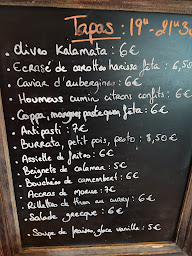 Tapas : 19h - 21h30
. Olives Kalamata : 6€
. Ecrasé de carottes harissa fêta : 6,50
. Caviar d'aubergine : 6€
. Houmous cumin citrons confits : 6€
. Coppa, manguer, fêta : 6€
. Antipasti : 7€
. Burrata, petit pois, pesto : 8,50€
. Assiette de frites : 6€
. Beignets de calamar : 5€
. Bouchées de camembert : 6€
. Accras de morue : 7€
. Rillettes de thon au curry : 6€
. Salade grecque : 6€
. Soupe de fraises, glace vanille : 5€